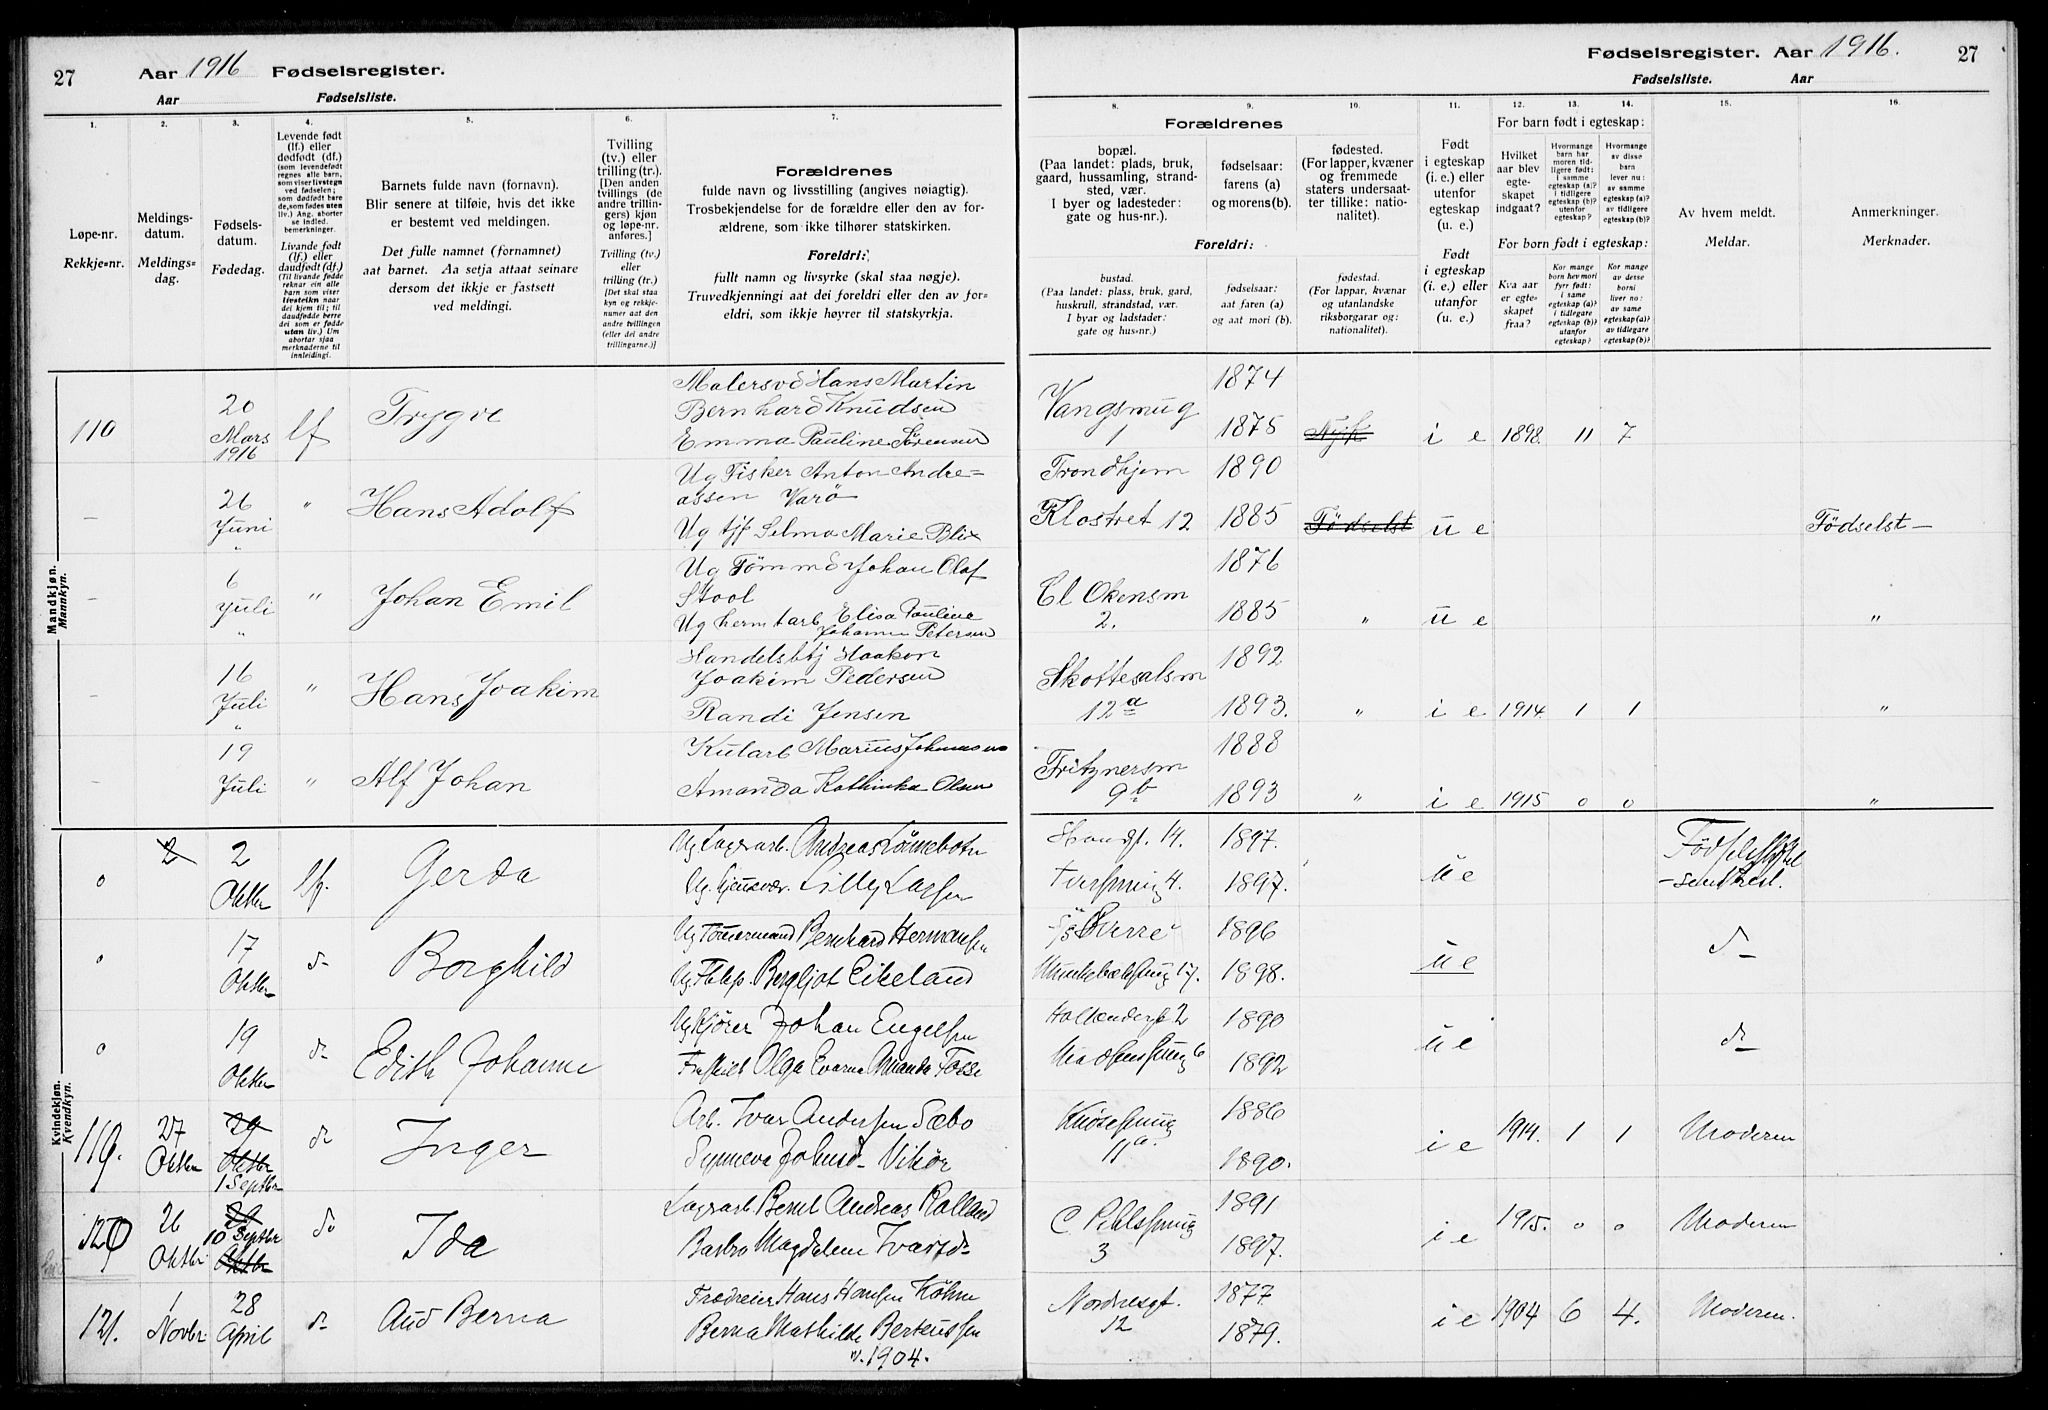 27 Aar 1916 Fødselsregister.
Aar Fødselsliste.
Fødselsregister. Aar 1916. 27
Fødselsliste. Aar
1. 2. 3. 4. 5. 6. 7.
Løpe-nr.
Rekkje=nr.
Meldings-
datum.
Meldings=
dag.
Fødsels-
datum.
Fødedag.
Levende født
(lf.) eller
dødfødt (df.)
(som levendefødt
regnes alle barn,
som viser livstegn
ved fødselen;
som dødfødt bare
de, som fødes uten
liv.) Ang. aborter
se indled.
bemerkninger.
Livande født
(lf.) eller
daudfødt (df.)
(Til livande fødde
reknar ein alle
barn som viser
livsteikn naar
dei kjem til; til
daudfødde berre
dei som er fødde
utan liv.) Um
abortar sjaa
merknaderne til
innleidingi.
Barnets fulde navn (fornavn).
Blir senere at tilføie, hvis det ikke
er bestemt ved meldingen.
Det fulle namnet (fornamnet)
aat barnet. Aa setja attaat seinare
dersom det ikkje er fastsett
ved meldingi.
Tvilling
(tv.) eller
trilling (tr.).
[Den anden
tvillings (de
andre trillin-
gers) kjøn
og løpe-nr.
anføres.]
Tvilling (tv.)
eller
trilling (tr.)
[Det skal staa
kyn og rekkje-
numer aat den
andre tvillingen
(eller dei andre
trillingarne.)]
Forældrenes
fulde navn og livsstilling (angives nøiagtig).
Trosbekjendelse for de forældre eller den av for-
ældrene, som ikke tilhører statskirken.
Foreldri:
fullt namn og livsyrke (skal staa nøgje).
Truvedkjenningi aat dei foreldri eller den av for=
eldri, som ikkje høyrer til statskyrkja.
8. 9. 10. 11. 12. 13. 14. 15. 16.
Forældrenes
bopæl.
(Paa landet: plads, bruk,
gaard, hussamling, strand-
sted, vær.
I byer og ladesteder:
gate og hus-nr.).
fødselsaar:
farens (a)
og morens (b).
fødested.
(For lapper, kvæner
og fremmede
staters undersaat-
ter tillike: natio-
nalitet).
Foreldri:
bustad.
(Paa landet: plass, bruk, gard,
huskrull, strandstad, vær.
I byar og ladstader:
gate og hus=nr.)
fødselsaar:
aat faren (a)
og aat mori (b).
fødestad.
(For lappar, kvænar
og utanlandske
riksborgarar og:
nationalitet).
Født
i egteskap
(i. e.) eller
utenfor
egteskap
(u. e.)
Født
i egteskap
(i. e.) eller
utanfor
egteskap
(u. e.)
For barn født i egteskap:
Hvilket
aar blev
egte-
skapet
indgaat?
For born født i egteskap:
Kva aar
er egte-
skapet
fraa?
Av hvem meldt.
Meldar.
Anmerkninger.
Merknader.
Mandkjøn.
Mannkyn.
110 20 Mars 1916 lf Trygve
Malersv Hans Martin
Bernhard Knudsen
Emma Pauline Sørensen
Vangsmug 1 1874 1875 i e 1898. 11 7
- 26 Juni " " Hans Adolf
Ug Fisker Anton Andre=
assen Varø
Ug tjf Selma Marie Blix
Trondhjem 1890
Klostret 12 1885 Fødselst u e Fødselst-
- 6 Juli " " Johan Emil
Ug Tømmd Johan Olaf
Stool
Ug hermtarb Elisa Pauline
Johanne Petersen
Cl Okensm 2. 1876 1885 " u e "
- 16 Juli " " Hans Joakim
Handelsbtj Haakon
Joakim Pedersen
Randi Jensen
Skottesalsm 12 a 1892 1893. " i e 1914. 1 1 "
- 19 Juli " Alf Johan
Kularb Marius Johannesen
Amanda Kathinka Olsen
Fritznersm 9 b 1888 1893 " i e 1915 0 0 "
Kvindekjøn.
Kvendkyn.
o 2 2 Oktbr lf. Gerda
Ug Lagerarb. Andreas Lønnebotn
Ug. tjenstvær. Lilly Larsen
14. 1897.
4. 1897. u e
o 17 Oktbr d- Borghild
Ug Tømmermand Bernhard Hermansen
Ug. Bergljot Eikeland
1896
17. 1898. u e d-
o 19 Oktbr d- Edith Johanne
Ug Kjører Johan Engelsen
Olga Evarna Amanda Tosse
Hollendergt 2 1890
Madsensmug 6 1892 u e d-
119. 27 Oktbr 29 Oktbr 1 Septbr d- Inger
Arb. Ivar Andersen Sæbo
Synneva Johnsd- Vikør
Knøsesmug 11 a. 1886 1890. i e 1914. 1 1 Moderen
120 26 Oktbr 29 10 Septbr Oktbr do Ida
Lagerarb. Bernt Andreas Rolland
Barbro Magdalene Ivarsd-
C Pihlsmug 3 1891 1897. i e 1915. 0 0 Moderen
121. 1 Novbr 28 April d- Aud Berna
Hans Hansen Køhne
Berna Mathilde Berteussen
v. 1904.
Nordnesgt. 12 1877. 1879. i e 1904 6 4. Moderen.